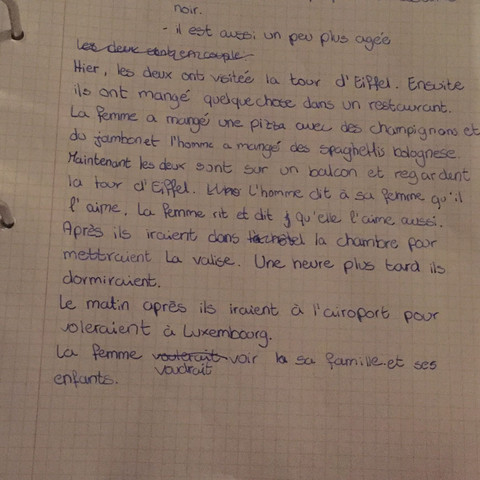 noir.
- il est aussi un peu plus ageé
Les deux sont en couple
Hier, les deux ont visiteé la tour d'Eiffel. Ensuite
ils ont mangé quelque chose dans un restaurant.
La femme a mangé une pizza avec des champignons et
du jambon et l'homme a mangé des spaghettis bolognese.
Maintenant les deux sont sur un balcon et regardant
la tour d'Eiffel. L'homme dit à sa femme qu'il
l'aime. La femme rit et dit qu'elle l'aime aussi.
Après ils iraient dans la chambre pour
mettraient la valise. Une heure plus tard ils
dormiraient.
Le matin après ils iraient à l'airoport pour
voleraient à Luxembourg.
La femme voulerait voir sa famille et ses
voudrait
enfants.